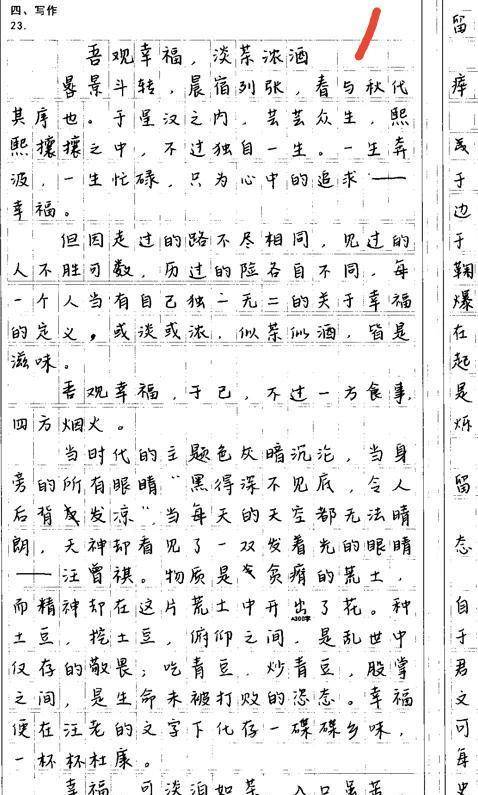 四、写作
23.
吾观幸福，淡茶浓酒
晷景斗转，晨宿列张，春与秋代
其序也。于星汉之内，芸芸众生，熙
熙攘攘之中，不过独自一生。一生奔
波，一生忙碌，只为心中的追求——
幸福。
但因走过的路不尽相同，见过的
人不胜可数，历过的险各自不同，每
一个人当有自己独一无二的关于幸福
的定义，或淡或浓，似茶似酒，皆是
滋味。
吾观幸福，于己，不过一方食事，
四方烟火。
当时代的主题色灰暗沉沦，当身
旁的所有眼睛“黑得深不见底，令人
后背发凉”，当每天的天空都无法晴
朗，天神却看见了一双发着光的眼睛
——汪曾祺。物质是贫瘠的荒土，
而精神却在这片荒土中开出了花。种
土豆，挖土豆，俯仰之间，是乱世中
仅存的敬畏；吃青豆，炒青豆，股掌
之间，是生命未被打败的姿态。幸福
便在汪老的文字下化存一碟碟乡味，
一杯杯杜康。
幸福，可淡泊如茶，入口虽苦，
留
美
于
边
于
鞠
爆
在
起
是
烁
留
态
自
于
君
文
可
每